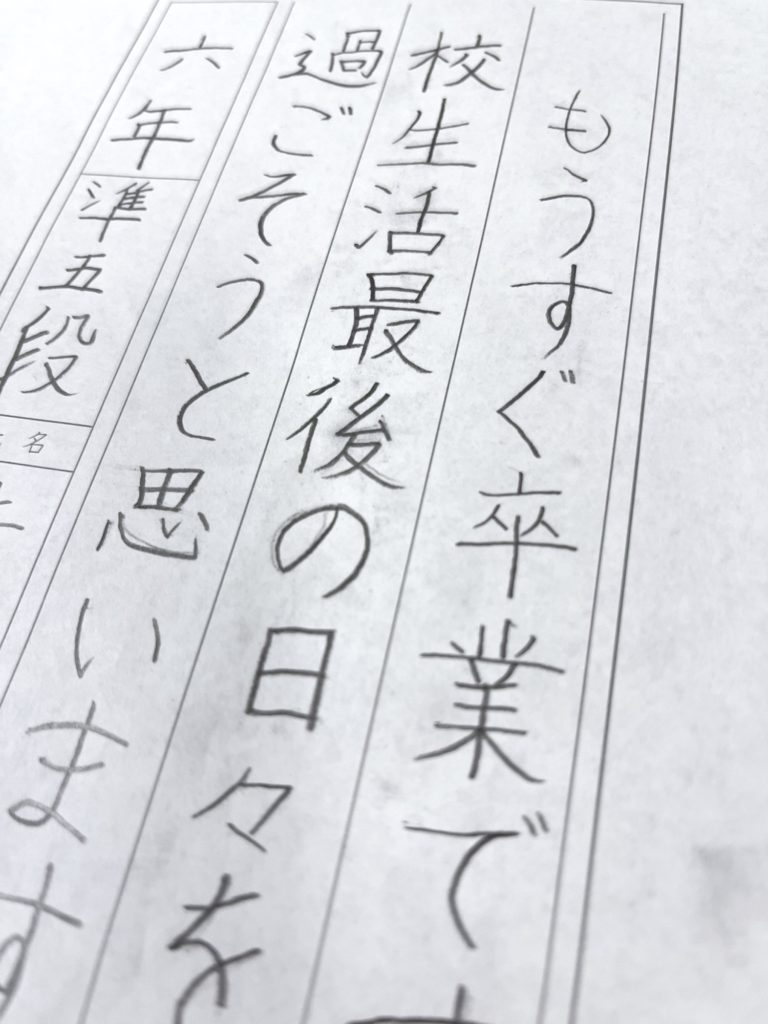 もうすぐ卒業で
校生活最後の日々を
過ごそうと思います
六年 準五段
名